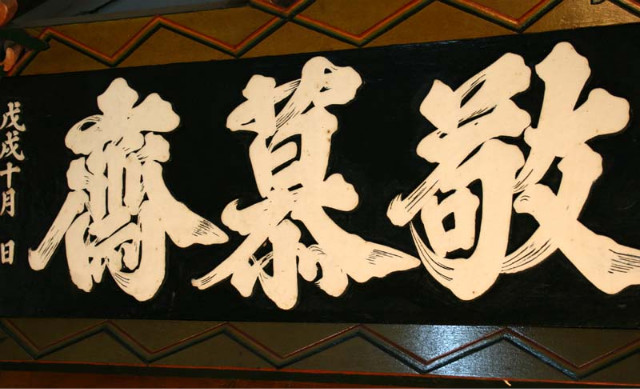 敬慕齋
戊戌十月 日